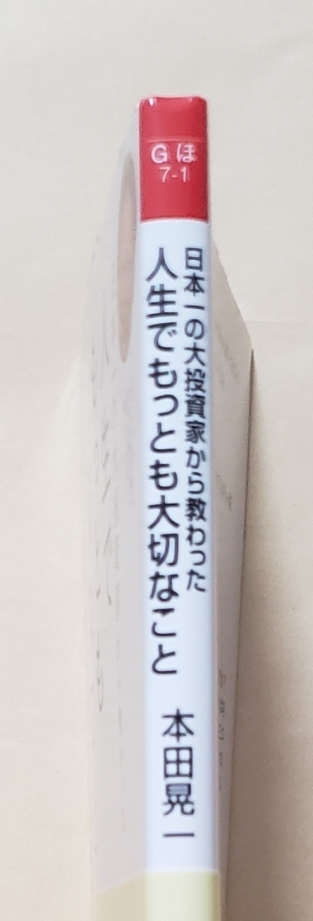 Gほ
7-1
日本一の大投資家から教わった
人生でもっとも大切なこと
本田晃一